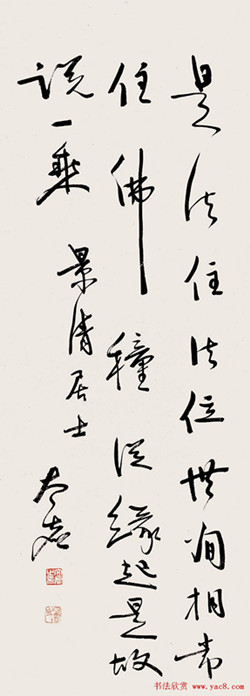 是法住法位世间相常
住佛種從緣起是故
說一乘
景清居士
太虚
书法欣赏
www.yac8.com